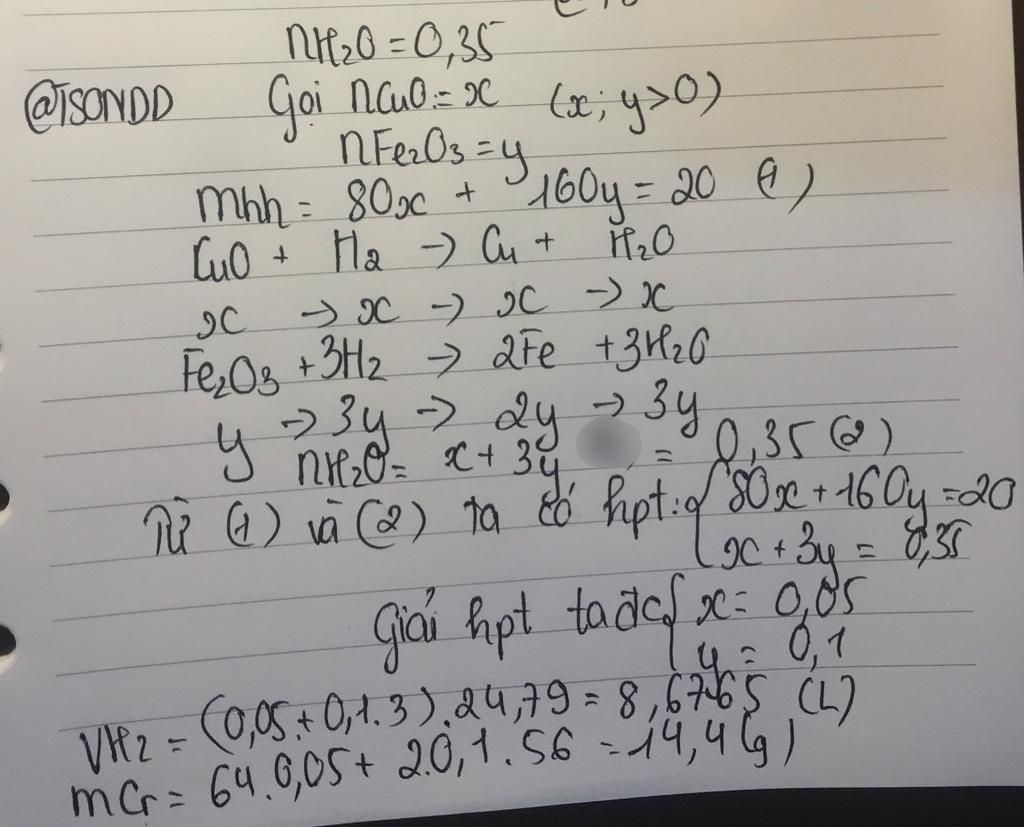 nH₂O = 0,35
@TSONDD Gọi nCuO = x (x; y>0)
nFe₂O₃ = y
mhh = 80x + 160y = 20 (1)
CuO + H₂ → Cu + H₂O
x → x → x → x
Fe₂O₃ + 3H₂ → 2Fe + 3H₂O
y → 3y → 2y → 3y
nH₂O = x + 3y = 0,35 (2)
Từ (1) và (2) ta có hpt: { 80x + 160y = 20
x + 3y = 0,35
Giải hpt ta đc { x = 0,05
y = 0,1
VH2 = (0,05 + 0,1.3).24,79 = 8,6765 (L)
mCr = 64.0,05 + 2.0,1.56 = 14,4(g)